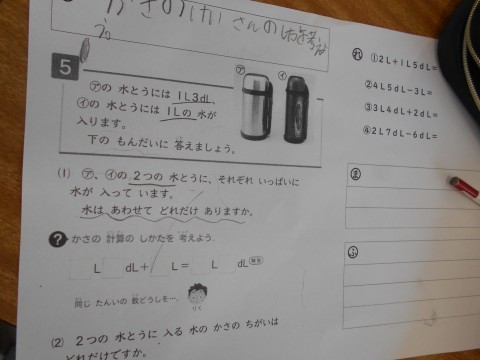 かさのけいさんのしかたを考え
5
㋐の 水とうには 1L3dL、
㋑の 水とうには 1Lの 水が
入ります。
下の もんだいに 答えましょう。
㋐
㋑
(1) ㋐、㋑の 2つの 水とうに、それぞれ いっぱいに
水が 入って います。
水は あわせて どれだけ ありますか。
? かさの 計算の しかたを 考えよう。
L dL+ L= L dL
同じ たんいの 数どうしを…。
りく
(2) 2つの 水とうに 入る 水の かさの ちがいは
どれだけですか。
れ ①2L+1L5dL=
②4L5dL-3L=
③3L4dL+2dL=
④2L7dL-6dL=
ま
ふ